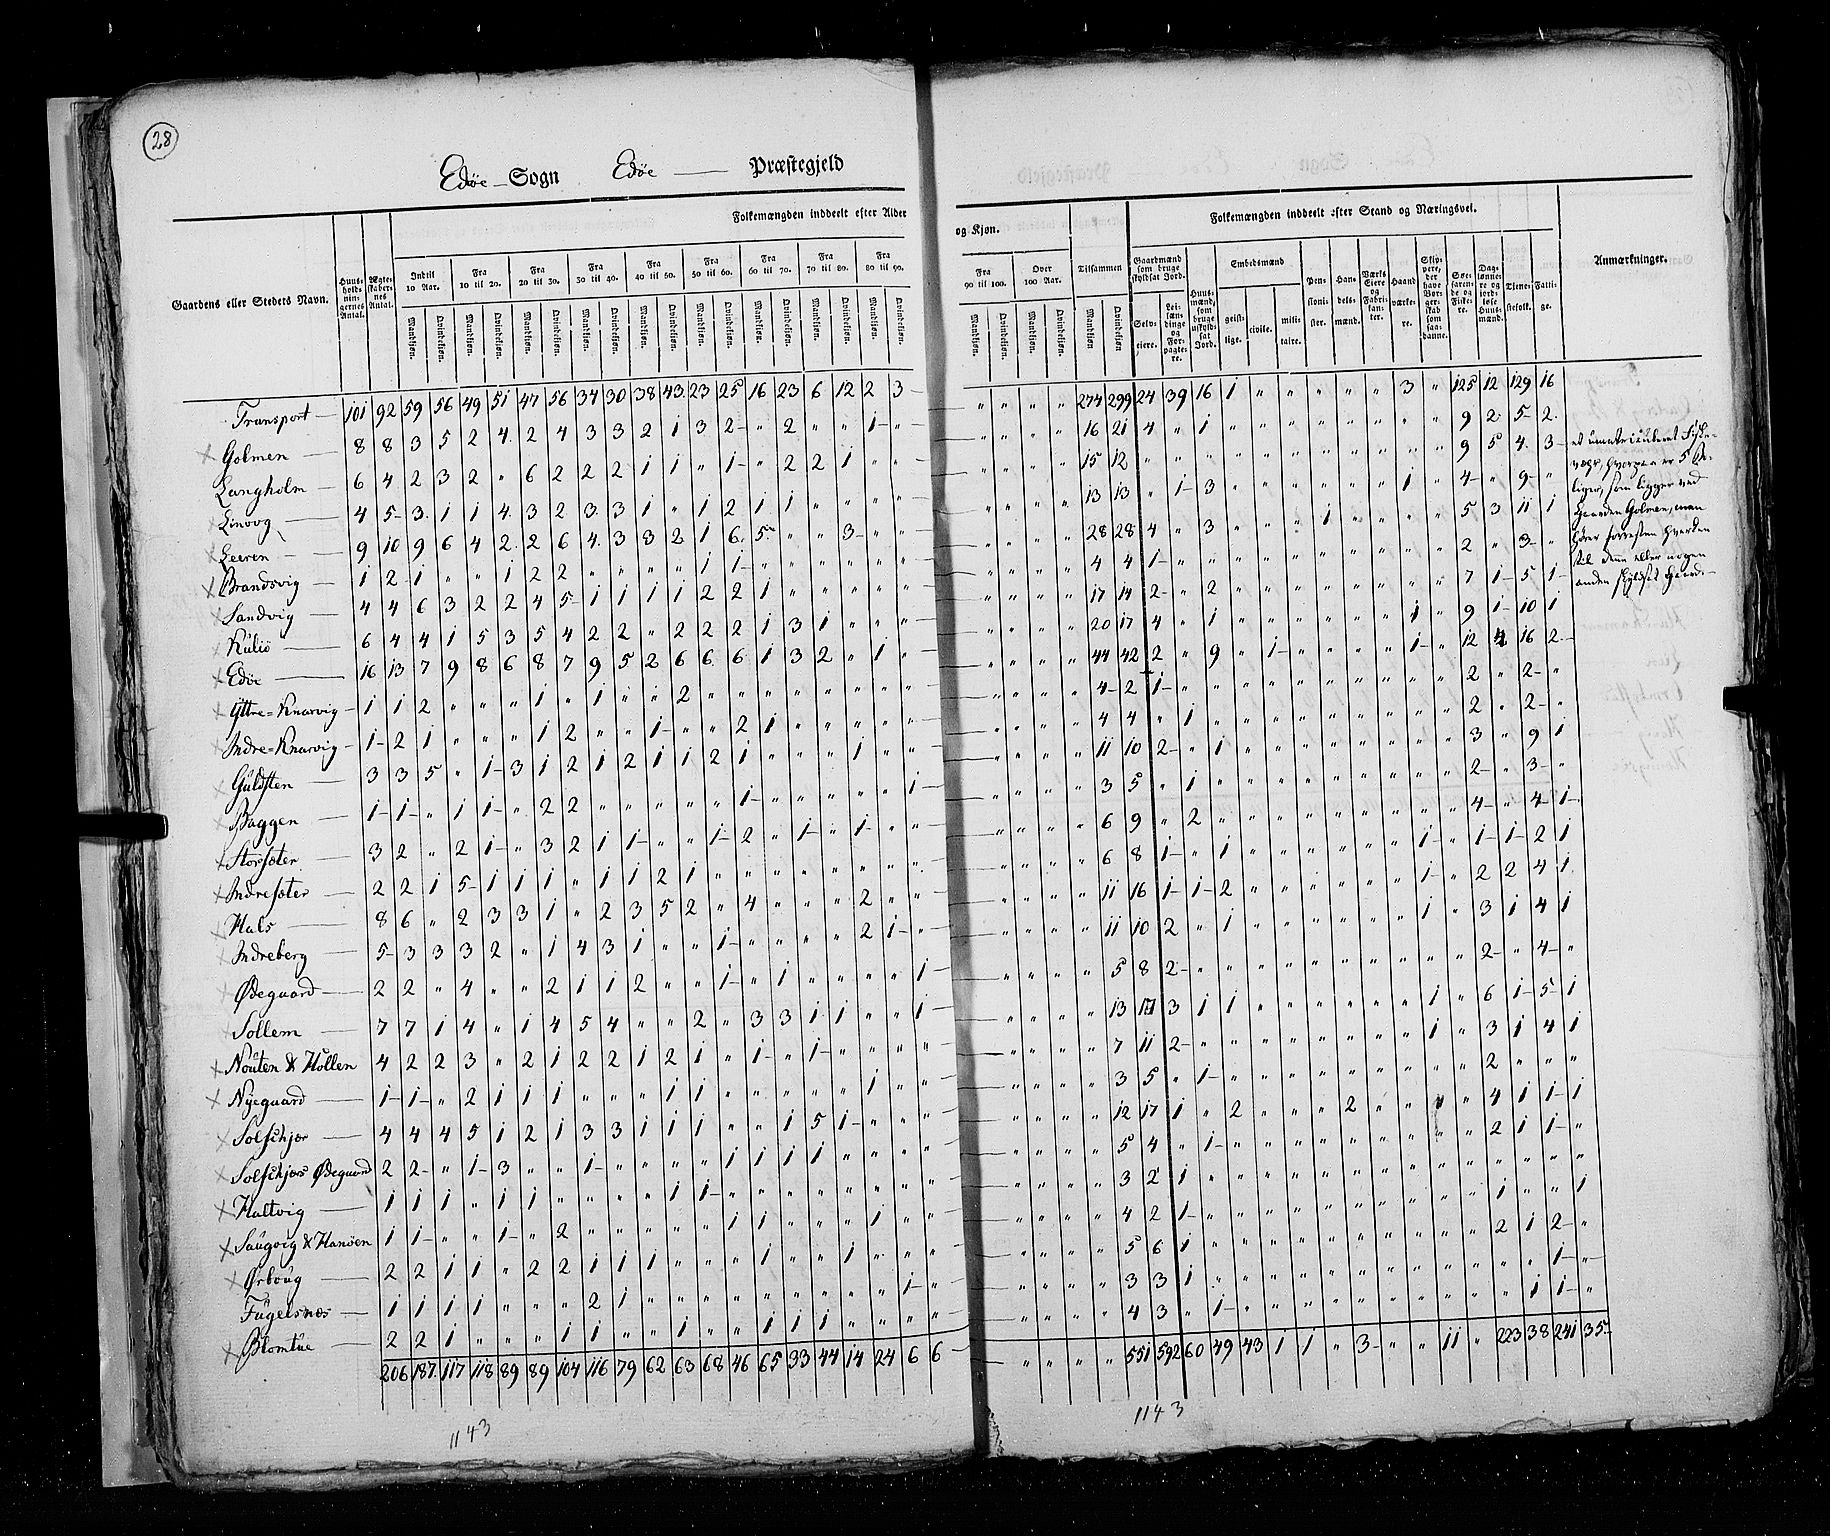 28
Edöe Sogn Edöe Præstegjeld
Folkemængden inddeelt efter Alder og Kjøn.
Folkemængden inddeelt efter Stand og Næringsvei.
Gaardens eller Stedets Navn.
Huusholdningernes Antal.
Ægteskabernes Antal.
Indtil 10 Aar.
Fra 10 til 20.
Fra 20 til 30.
Fra 30 til 40.
Fra 40 til 50.
Fra 50 til 60.
Fra 60 til 70.
Fra 70 til 80.
Fra 80 til 90.
Fra 90 til 100.
Over 100 Aar.
Mandkjøn. Qvindekjøn.
Tilsammen
Mandkjøn. Qvindekjøn
Gaardmænd som bruge skyldsat Jord.
Selveiere.
Leilændinge og Forpagtere.
Huusmænd, som bruge uskyldsat Jord.
Embedsmænd
geistlige. civile. militaire.
Pensionister.
Handelsmænd.
Værks Eiere og Fabrikanter.
Haandværkere.
Skippere, der have Borgerskab som saadanne.
Søefarende og Fiskere.
Daglønnere og jordløse Huusmænd.
Tjenestefolk.
Fattige.
Anmærkninger.
Transport 101 92 59 56 49 51 47 56 34 30 38 43 23 25 16 23 6 12 2 3 " " " " 274 299 24 39 16 1 " " " " " 3 " 125 12 129 16
Golmen 8 8 3 5 2 4 2 4 3 3 2 1 3 2 " 2 " " 1 " " " " " 16 21 4 " 1 " " " " " " " " 9 2 5 2
Langholm 6 4 2 3 2 " 6 2 2 2 1 1 " 1 " 2 2 1 " " " " " " 15 12 " " " " " " " " " " " 9 5 4 3
Linvog 4 5 3 1 1 4 3 2 3 3 1 " 1 2 1 1 " " " " " " " " 13 13 " 1 3 " " " " " " 1 " 4 " 9 "
Leeren 9 10 9 6 4 2 2 6 4 3 3 2 1 6 5 " " 3 " " " " " " 28 28 4 " 3 " " " 1 " " " " 5 3 11 1
Brandsvig 1 2 1 " " 1 2 2 " " " " 1 1 " " " " " " " " " " 4 4 1 " " " " " " " " " " 2 " 3 "
Sandvig 4 4 6 3 2 2 4 5 1 1 1 1 2 2 1 " " " " " " " " " 17 14 2 " 2 " " " " " " " " 7 1 5 1
Kuliö 6 4 4 1 5 3 5 4 2 2 " 2 2 2 1 3 1 " " " " " " " 20 17 4 " 1 " " " " " " 1 " 9 1 10 1
Edöe 16 13 7 9 8 6 8 7 9 5 2 6 6 6 1 3 2 " 1 " " " " " 44 42 2 " 9 " 1 " " " " 1 " 12 4 16 2
Yttre=Knarvig 1 1 2 " " " 1 " 1 " " 2 " " " " " " " " " " " " 4 2 1 " " " " " " " " " " 2 " 2 "
Indre=Knarvig 1 2 1 " " " 1 2 " " 1 " " 2 1 " " " " " " " " " 4 4 " 1 " " " " " " " " " 2 " 2 "
Guldsten 3 3 5 " 1 3 1 2 1 2 1 1 2 1 " " " 1 " " " " " " 11 10 2 " 1 " " " " " " " " 3 " 9 1
Baggen 1 1 " 1 1 " 2 2 " " " " " 1 " " " " " 1 " " " " 3 5 " 1 " " " " " " " " " 2 " 3 "
Storsöter 3 2 " 2 1 " 3 2 1 1 " " 1 2 " 1 " 1 " " " " " " 6 9 " 2 " " " " " " " " " 4 " 4 1
Indresöter 2 2 1 5 1 1 1 " 1 1 2 1 " " " " " " " " " " " " 6 8 1 " 1 " " " " " " 1 " 1 1 2 1
Hals 8 6 " 2 3 3 1 " 2 3 5 2 " 4 " " " 2 " " " " " " 11 16 1 1 2 " " " " " " 1 " 2 2 4 1
Indreberg 5 3 3 3 2 " 1 4 3 1 " " 1 " " " " 2 1 " " " " " 11 10 2 " 1 " " " " " " 1 " 3 1 4 1
Ødegaard 2 2 " 4 " " 2 1 1 2 " " 1 " 1 " " " " 1 " " " " 5 8 2 " " " " " " " " " " 2 " 4 "
Sollem 7 7 1 4 " 1 4 5 4 " " 2 " 3 3 1 1 " " 1 " " " " 13 17 3 1 1 " " " " " " 1 " 6 1 5 1
Nouten & Hollen 4 2 2 3 " 2 1 2 2 1 2 1 " 1 " 1 " " " " " " " " 7 11 2 " " " " " " " " 1 " 3 1 4 1
Nyegaard 1 1 " 2 1 1 1 " " " 1 1 " " " " " 1 " " " " " " 3 5 " 1 " " " " " " " " " 2 " " "
Solschjær 4 4 4 5 1 2 1 3 3 1 1 1 " " 1 5 1 " " " " " " " 12 17 1 " 2 " " " 2 " " " " 4 1 1 1
Solschjærs Ødegaard 2 2 " 1 3 " " 1 " " " " 1 1 1 1 " " " " " " " " 5 4 " 1 " " " " " " " " " 2 1 1 "
Haltvig 1 1 1 " 1 1 " " " " 1 1 " " " " " " " " " " " " 3 2 1 " " " " " " " " " " " " " "
Saugvig & Hanöen 1 1 " " 1 " 2 " " " " " 1 1 " " " 1 " " " " " " 4 2 1 " " " " " " " " " " 1 " " 1
Ørboug 2 2 1 1 " 2 2 1 1 1 " " " 1 " " 1 " " " " " " " 5 6 1 " " " " " " " " " " 2 1 2 "
Fugelsnæs 1 1 1 1 " " " 2 1 " " " " " " " " " 1 " " " " " 3 3 1 " " " " " " " " " " " " 1 "
Blomtue 2 2 1 " " " 1 1 " " 1 " " 1 1 1 " " " " " " " " 4 3 " 1 " " " " " " " " " " 1 1 "
206 187 117 118 89 89 104 116 79 62 63 68 46 65 33 44 14 24 6 6 " " " " 551 592 60 49 43 1 1 " 3 " " 11 " 223 38 241 35
1143
1143
et umatriculeret Fiskevær, hvorpaa er 5
som ligger ved
Gaarden Golmen, men
hører forresten hverken
til denne eller nogen
anden skyldsat Gaard.